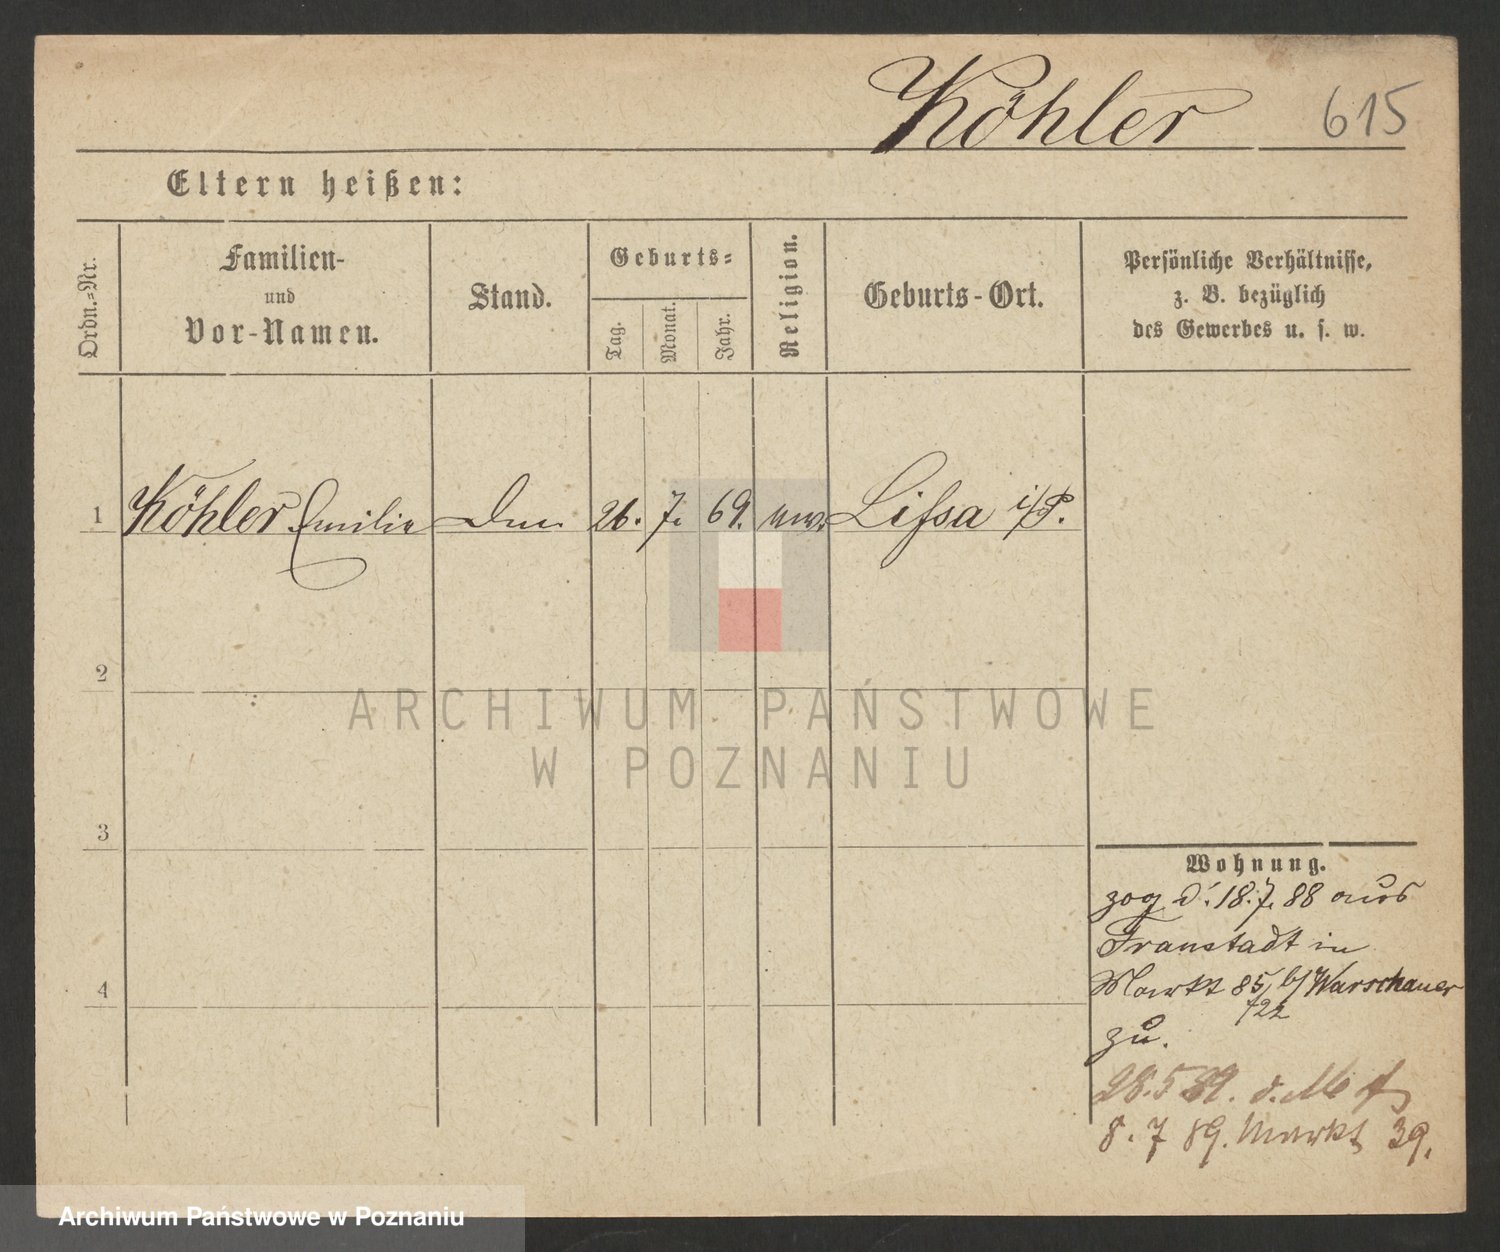 Köhler 615
Eltern heißen:
Ordn.=Nr.
Familien-
und
Vor-Namen.
Stand.
Geburts=
Tag.
Monat.
Jahr.
Religion.
Geburts-Ort.
Persönliche Verhältnisse,
z. B. bezüglich
des Gewerbes u. s. w.
1 Köhler Emilie 26. 7. 69. Lissa i/P.
2
3
4
Wohnung.
zog d. 18.7.88 aus
Fraustadt in
Markt 85, b/ Warschauer
zu.
28.5 89. d.
8.7 89. Markt 39.
ARCHIWUM PAŃSTWOWE
W POZNANIU
Archiwum Państwowe w Poznaniu